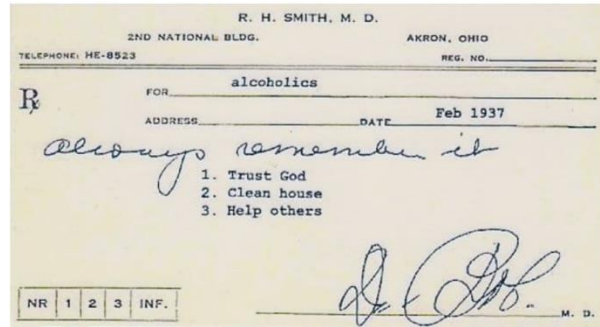 R. H. SMITH, M. D.
2ND NATIONAL BLDG. AKRON, OHIO
TELEPHONE: HE-8523 REG. NO.
Rx FOR alcoholics
ADDRESS DATE Feb 1937
always remember it
1. Trust God
2. Clean house
3. Help others
Dr. Bob.
NR 1 2 3 INF. M. D.